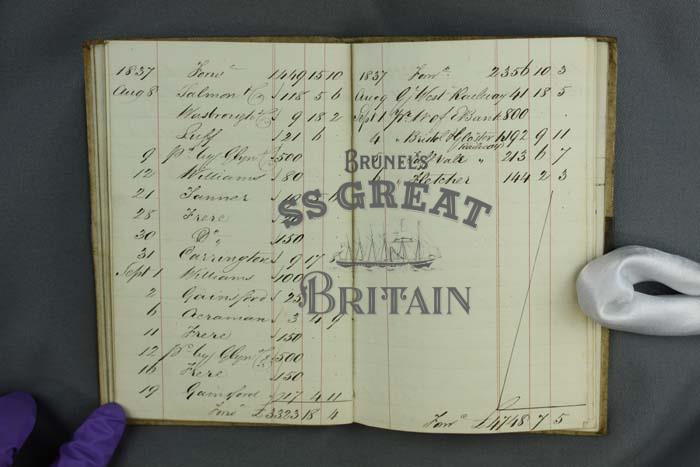 1837 Forw^d 1449 15 10
Aug 8 Salmon & C^o 118 5 6
Wasbrough & C^o 9 18 2
Self 121 6
9 p^d by Glyn & C^o 500
12 Williams 80
21 Tanner
28 Frere
30 D^o 150
31 Carrington 9 17
Sept 1 Williams 100
2 Gainsford 25
6 Acraman 3 4 9
11 Frere 150
12 p^d by Glyn & C^o 500
16 Frere 150
19 Gainsford 217 4 11
Forw^d £3323 18 4
1837 Forw^d 2356 10 3
Aug 9 G^t West^n Railway 41 18 5
Sept 1 of Bank 800
4 Bristol & Gloster Railway 192 9 11
Vale " 213 6 7
Fletcher 144 2 3
Forw^d £4748 7 5
BRUNEL'S
SS GREAT
BRITAIN